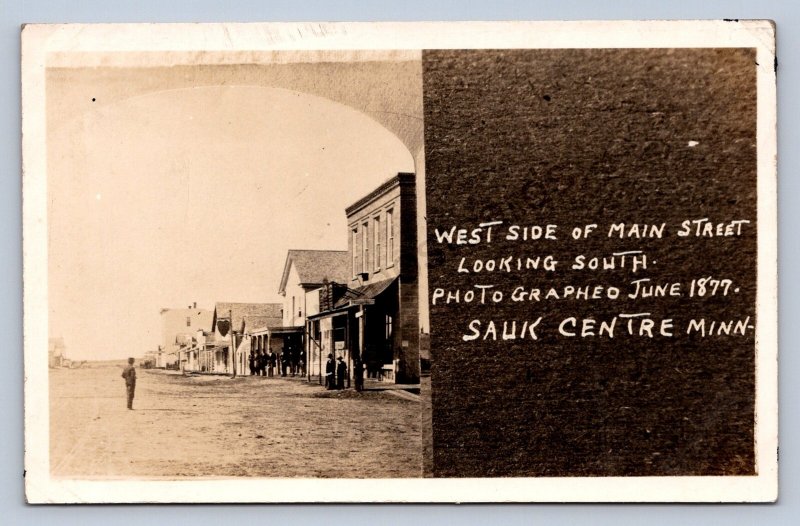 WEST SIDE OF MAIN STREET
LOOKING SOUTH.
PHOTOGRAPHED JUNE 1877.
SAUK CENTRE MINN-